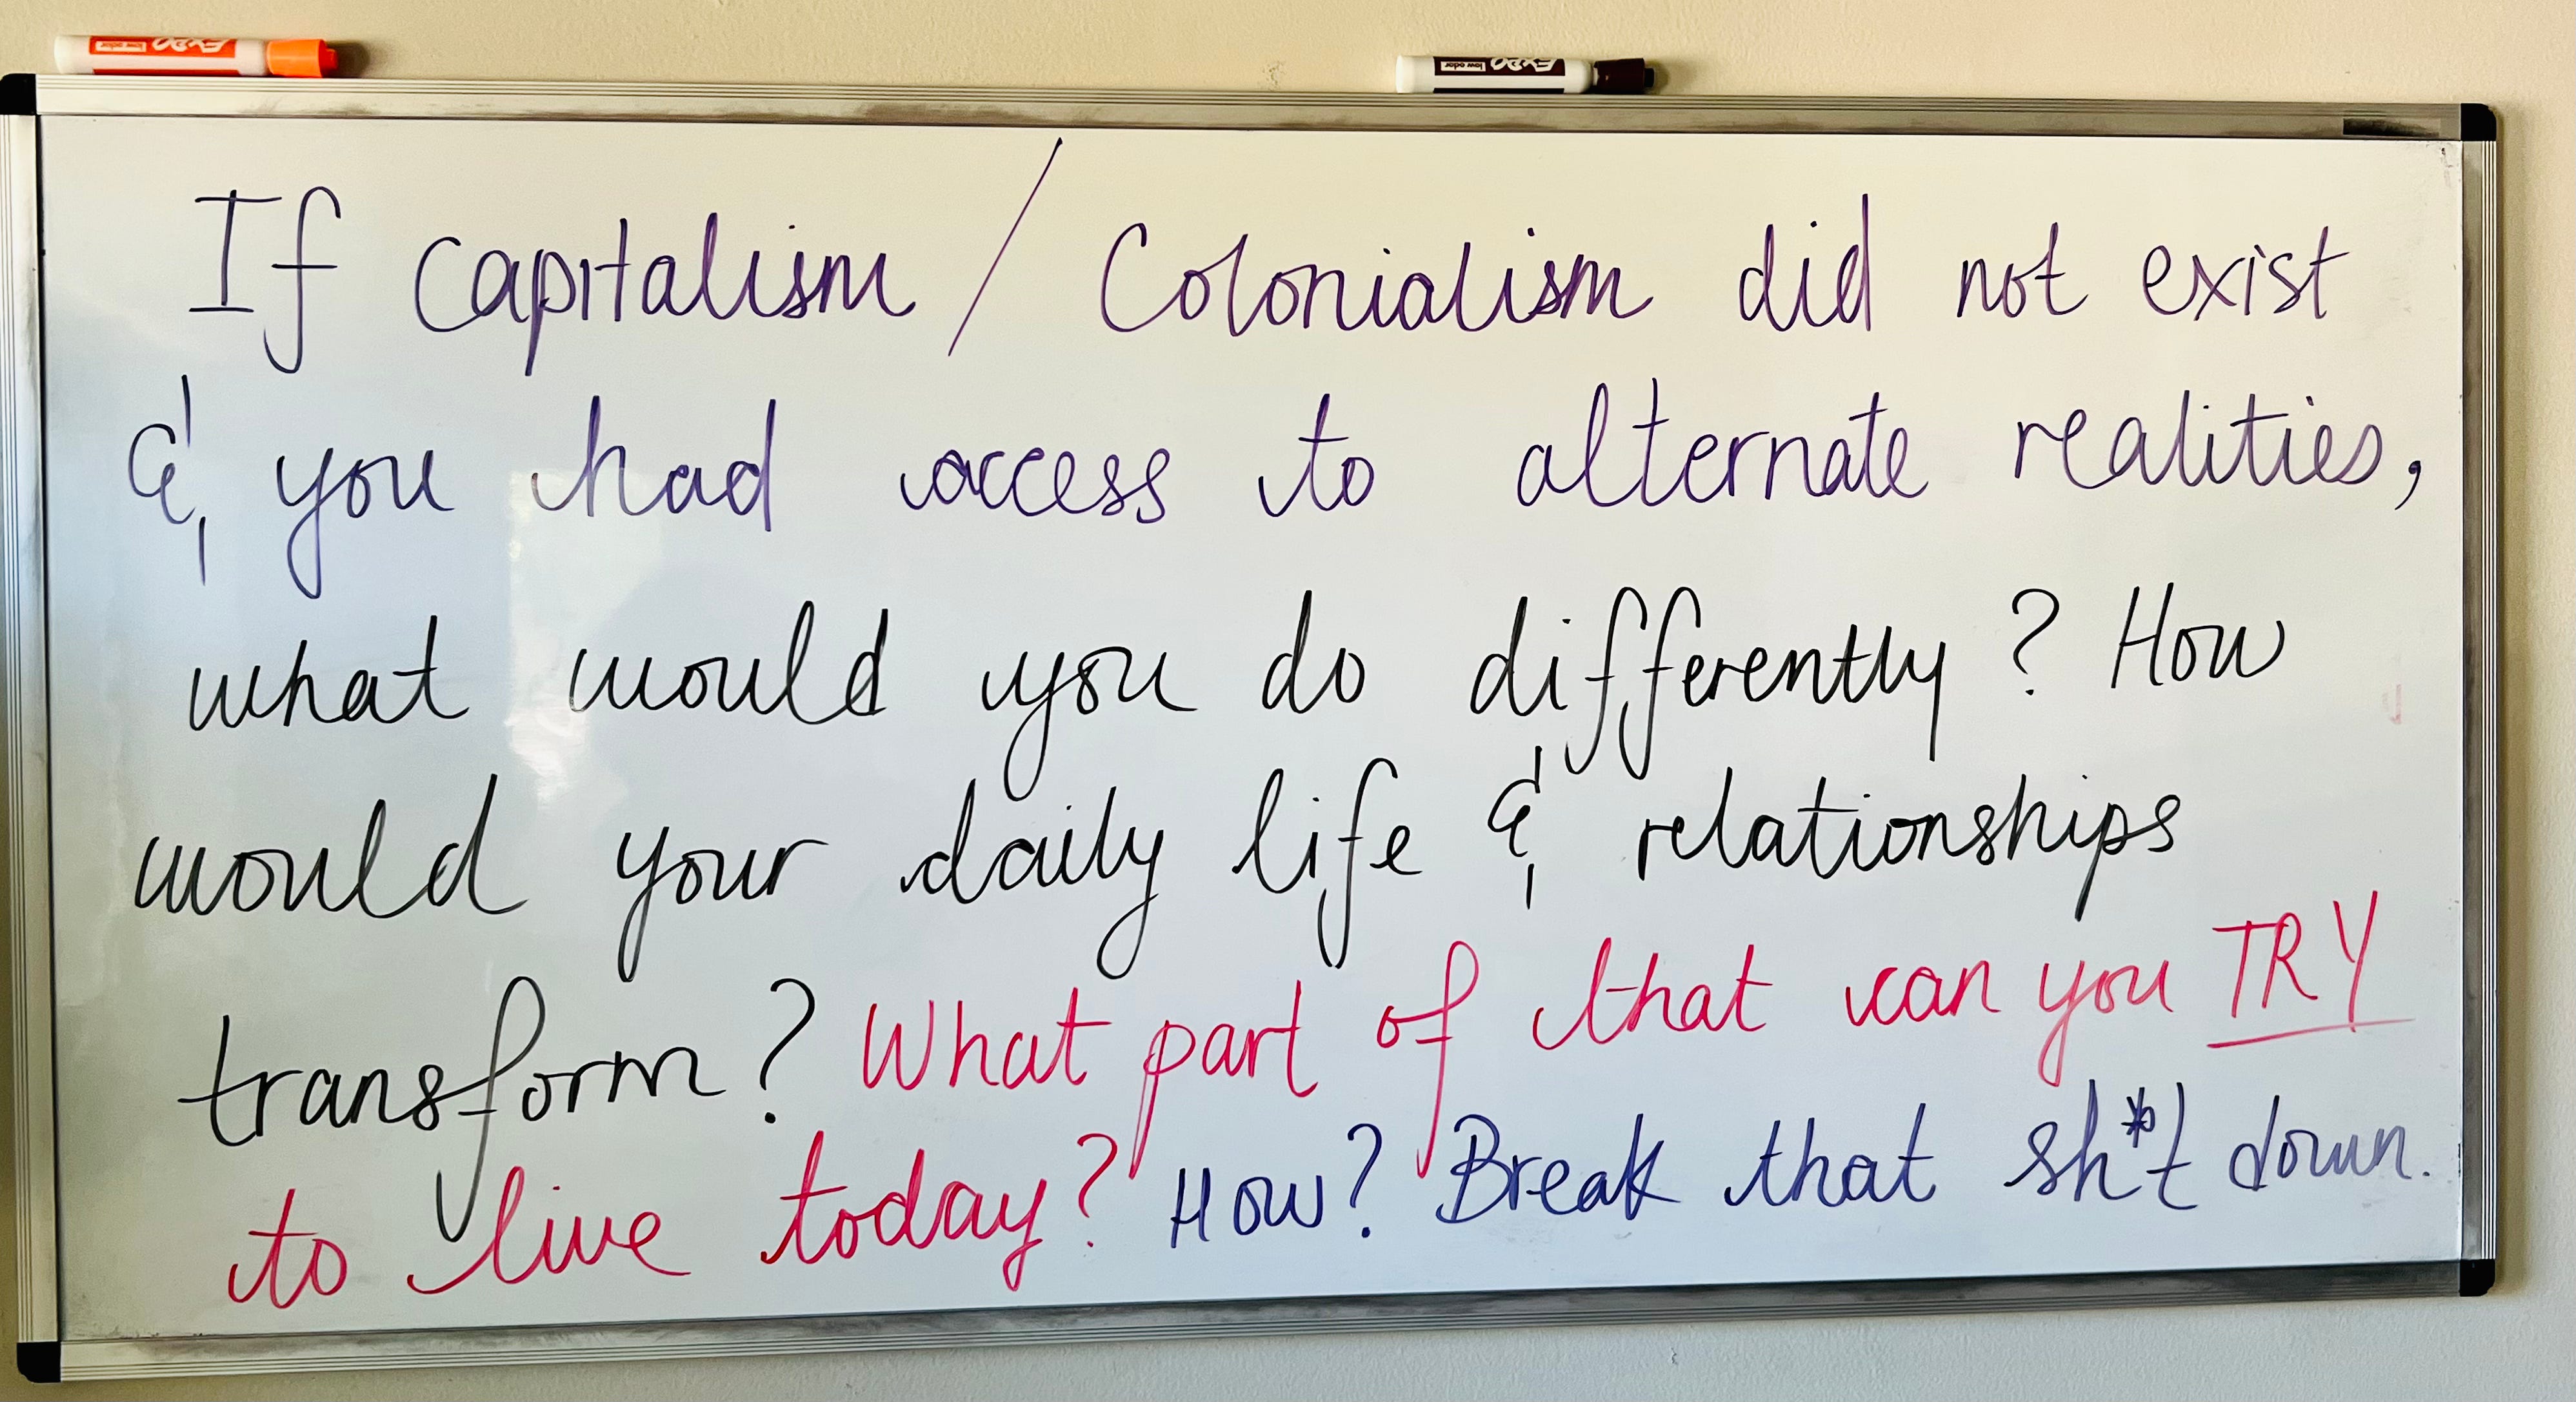 EXPO low odor
EXPO low odor
If Capitalism / Colonialism did not exist
& you had access to alternate realities,
what would you do differently? How
would your daily life & relationships
transform? What part of that can you TRY
to live today? How? Break that sh*t down.